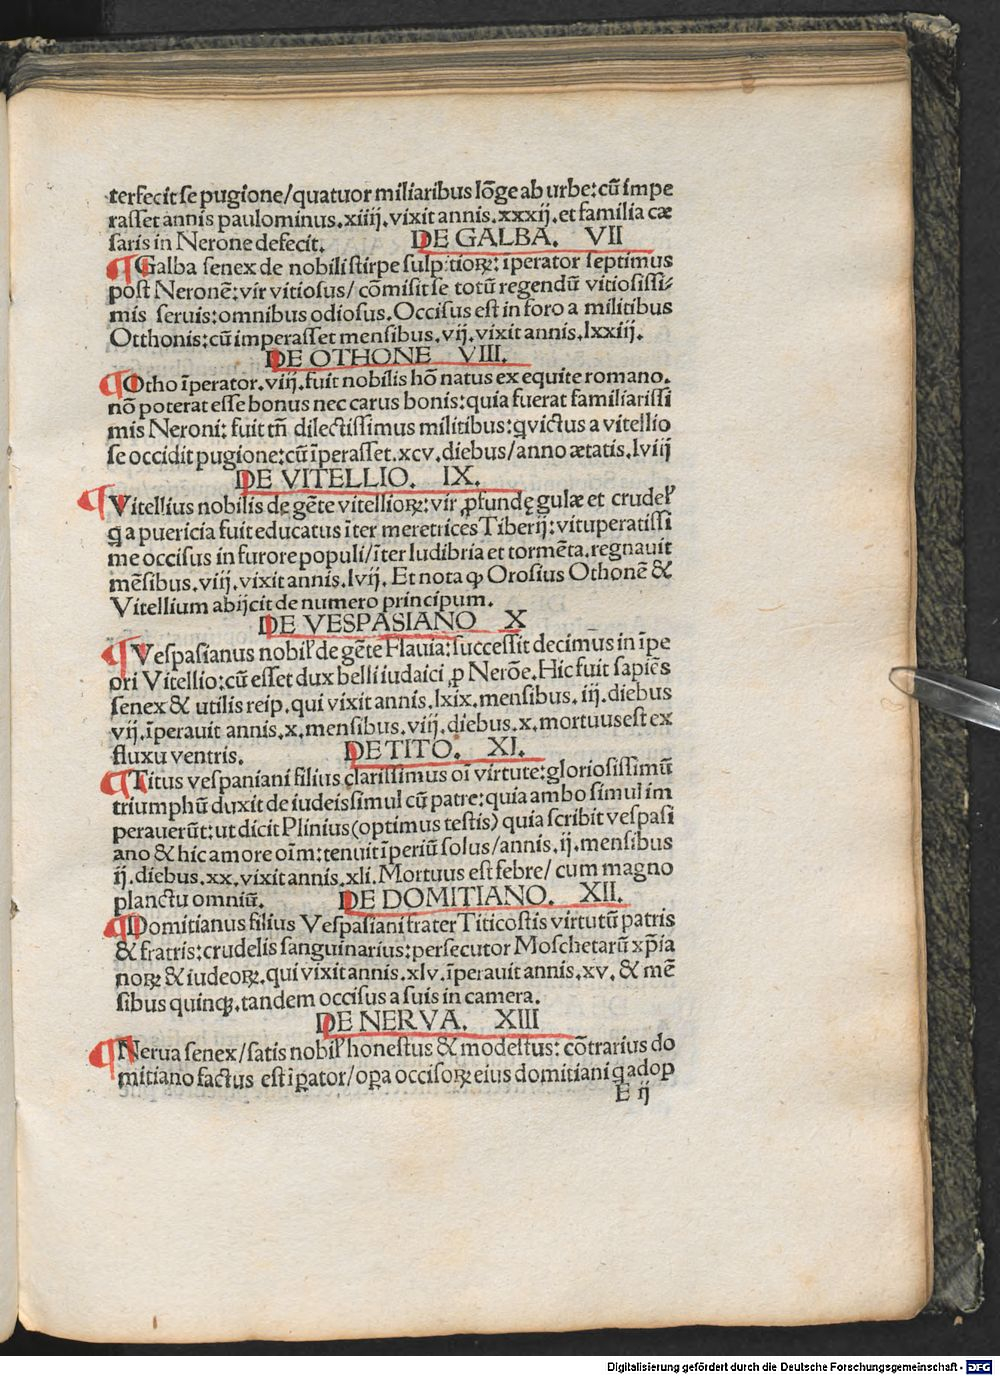 terfecit se pugione/quatuor miliaribus lõge ab urbe:cũ impe
rasset annis paulominus.xiiij.vixit annis.xxxij.et familia cæ
saris in Nerone defecit. DE GALBA. VII
¶Galba senex de nobili stirpe sulpitioꝝ: iperator septimus
post Neronẽ:vir vitiosus/ cõmisit se totũ regendũ vitiosissi⸗
mis seruis:omnibus odiosus.Occisus est in foro a militibus
Otthonis:cũ imperasset mensibus.vij.vixit annis.lxxiij.
DE OTHONE VIII.
¶Otho ĩperator.viij.fuit nobilis hõ natus ex equite romano.
nõ poterat esse bonus nec carus bonis:quia fuerat familiarissi
mis Neroni: fuit tñ dilectissimus militibus:qvictus a vitellio
se occidit pugione:cũ ĩperasset.xcv.diebus/anno ætatis.lviij
DE VITELLIO. IX.
¶Vitellius nobilis de gẽte vitellioꝝ:vir ꝓfundę gulæ et crudel'
q a puericia fuit educatus ĩter meretrices Tiberij:vituperatissi
me occisus in furore populi/ĩter ludibria et tormẽta.regnauit
mẽsibus.viij.vixit annis.lvij. Et nota ꝙ Orosius Othonẽ &
Vitellium abijcit de numero principum.
DE VESPASIANO X
¶Vespasianus nobil' de gẽte Flauia:successit decimus in ĩpe
ori Vitellio:cũ esset dux belli iudaici ꝓ Nerõe.Hic fuit sapiẽs
senex & utilis reip.qui vixit annis.lxix.mensibus.iij.diebus
vij.ĩperauit annis.x.mensibus.viij.diebus.x.mortuus est ex
fluxu ventris. DE TITO. XI.
¶Titus vespaniani filius clarissimus oĩ virtute:gloriosissimũ
triumphũ duxit de iudeis simul cũ patre:quia ambo simul im
perauerũt:ut dicit Plinius(optimus testis) quia scribit vespasi
ano & hic amore oĩm:tenuit ĩperiũ solus/annis.ij.mensibus
ij.diebus.xx.vixit annis.xli.Mortuus est febre/ cum magno
planctu omniũ. DE DOMITIANO. XII.
¶Domitianus filius Vespasiani frater Titi costis virtutũ patris
& fratris:crudelis sanguinarius:persecutor Moschetarũ xp̃ia
noꝝ & iudeoꝝ.qui vixit annis.xlv.ĩperauit annis.xv.& mẽ
sibus quinqꝫ.tandem occisus a suis in camera.
DE NERVA. XIII
¶Nerua senex/satis nobil' honestus & modestus: cõtrarius do
mitiano factus est iꝑator/oꝑa occisoꝝ eius domitiani q adop
E ij
Digitalisierung gefördert durch die Deutsche Forschungsgemeinschaft - DFG